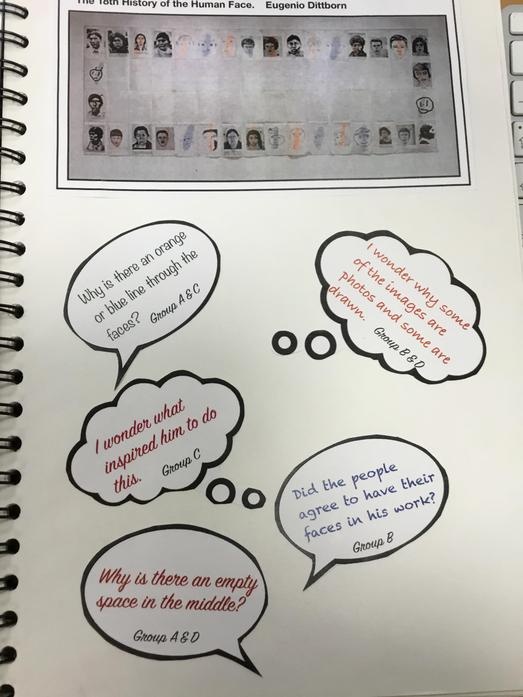 The 18th History of the Human Face. Eugenio Dittborn
Why is there an orange
or blue line through the
faces? Group A & C
I wonder why some
of the images are
photos and some are
drawn. Group B & D
I wonder what
inspired him to do
this. Group C
Did the people
agree to have their
faces in his work?
Group B
Why is there an empty
space in the middle?
Group A & D